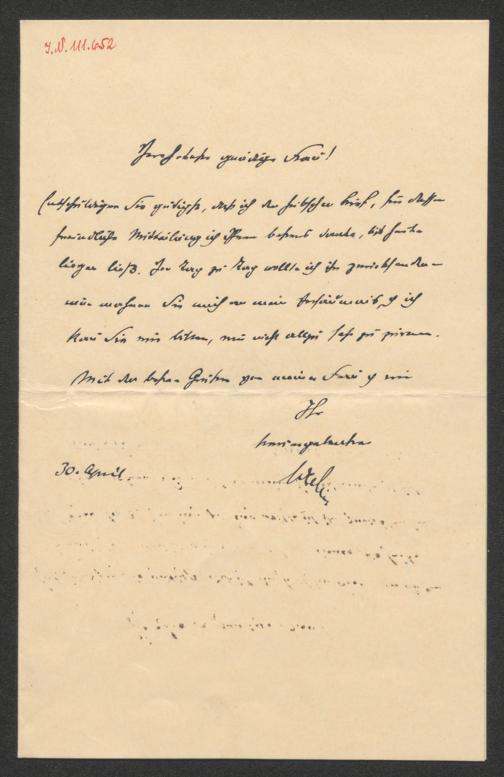 I.N. 111.652
Verehrteste gnädige Frau!
Entschuldigen Sie gütigst, daß ich den hübschen Brief, für dessen
freundliche Mitteilung ich Ihnen bestens danke, bis heute
liegen ließ. Von Tag zu Tag wollte ich ihn zurücksenden –
nun mahnen Sie mich an mein Versäumnis, & ich
kann Sie nur bitten, mir nicht allzu sehr zu zürnen.
Mit den besten Grüßen von meiner Frau & mir
Ihr
30. April